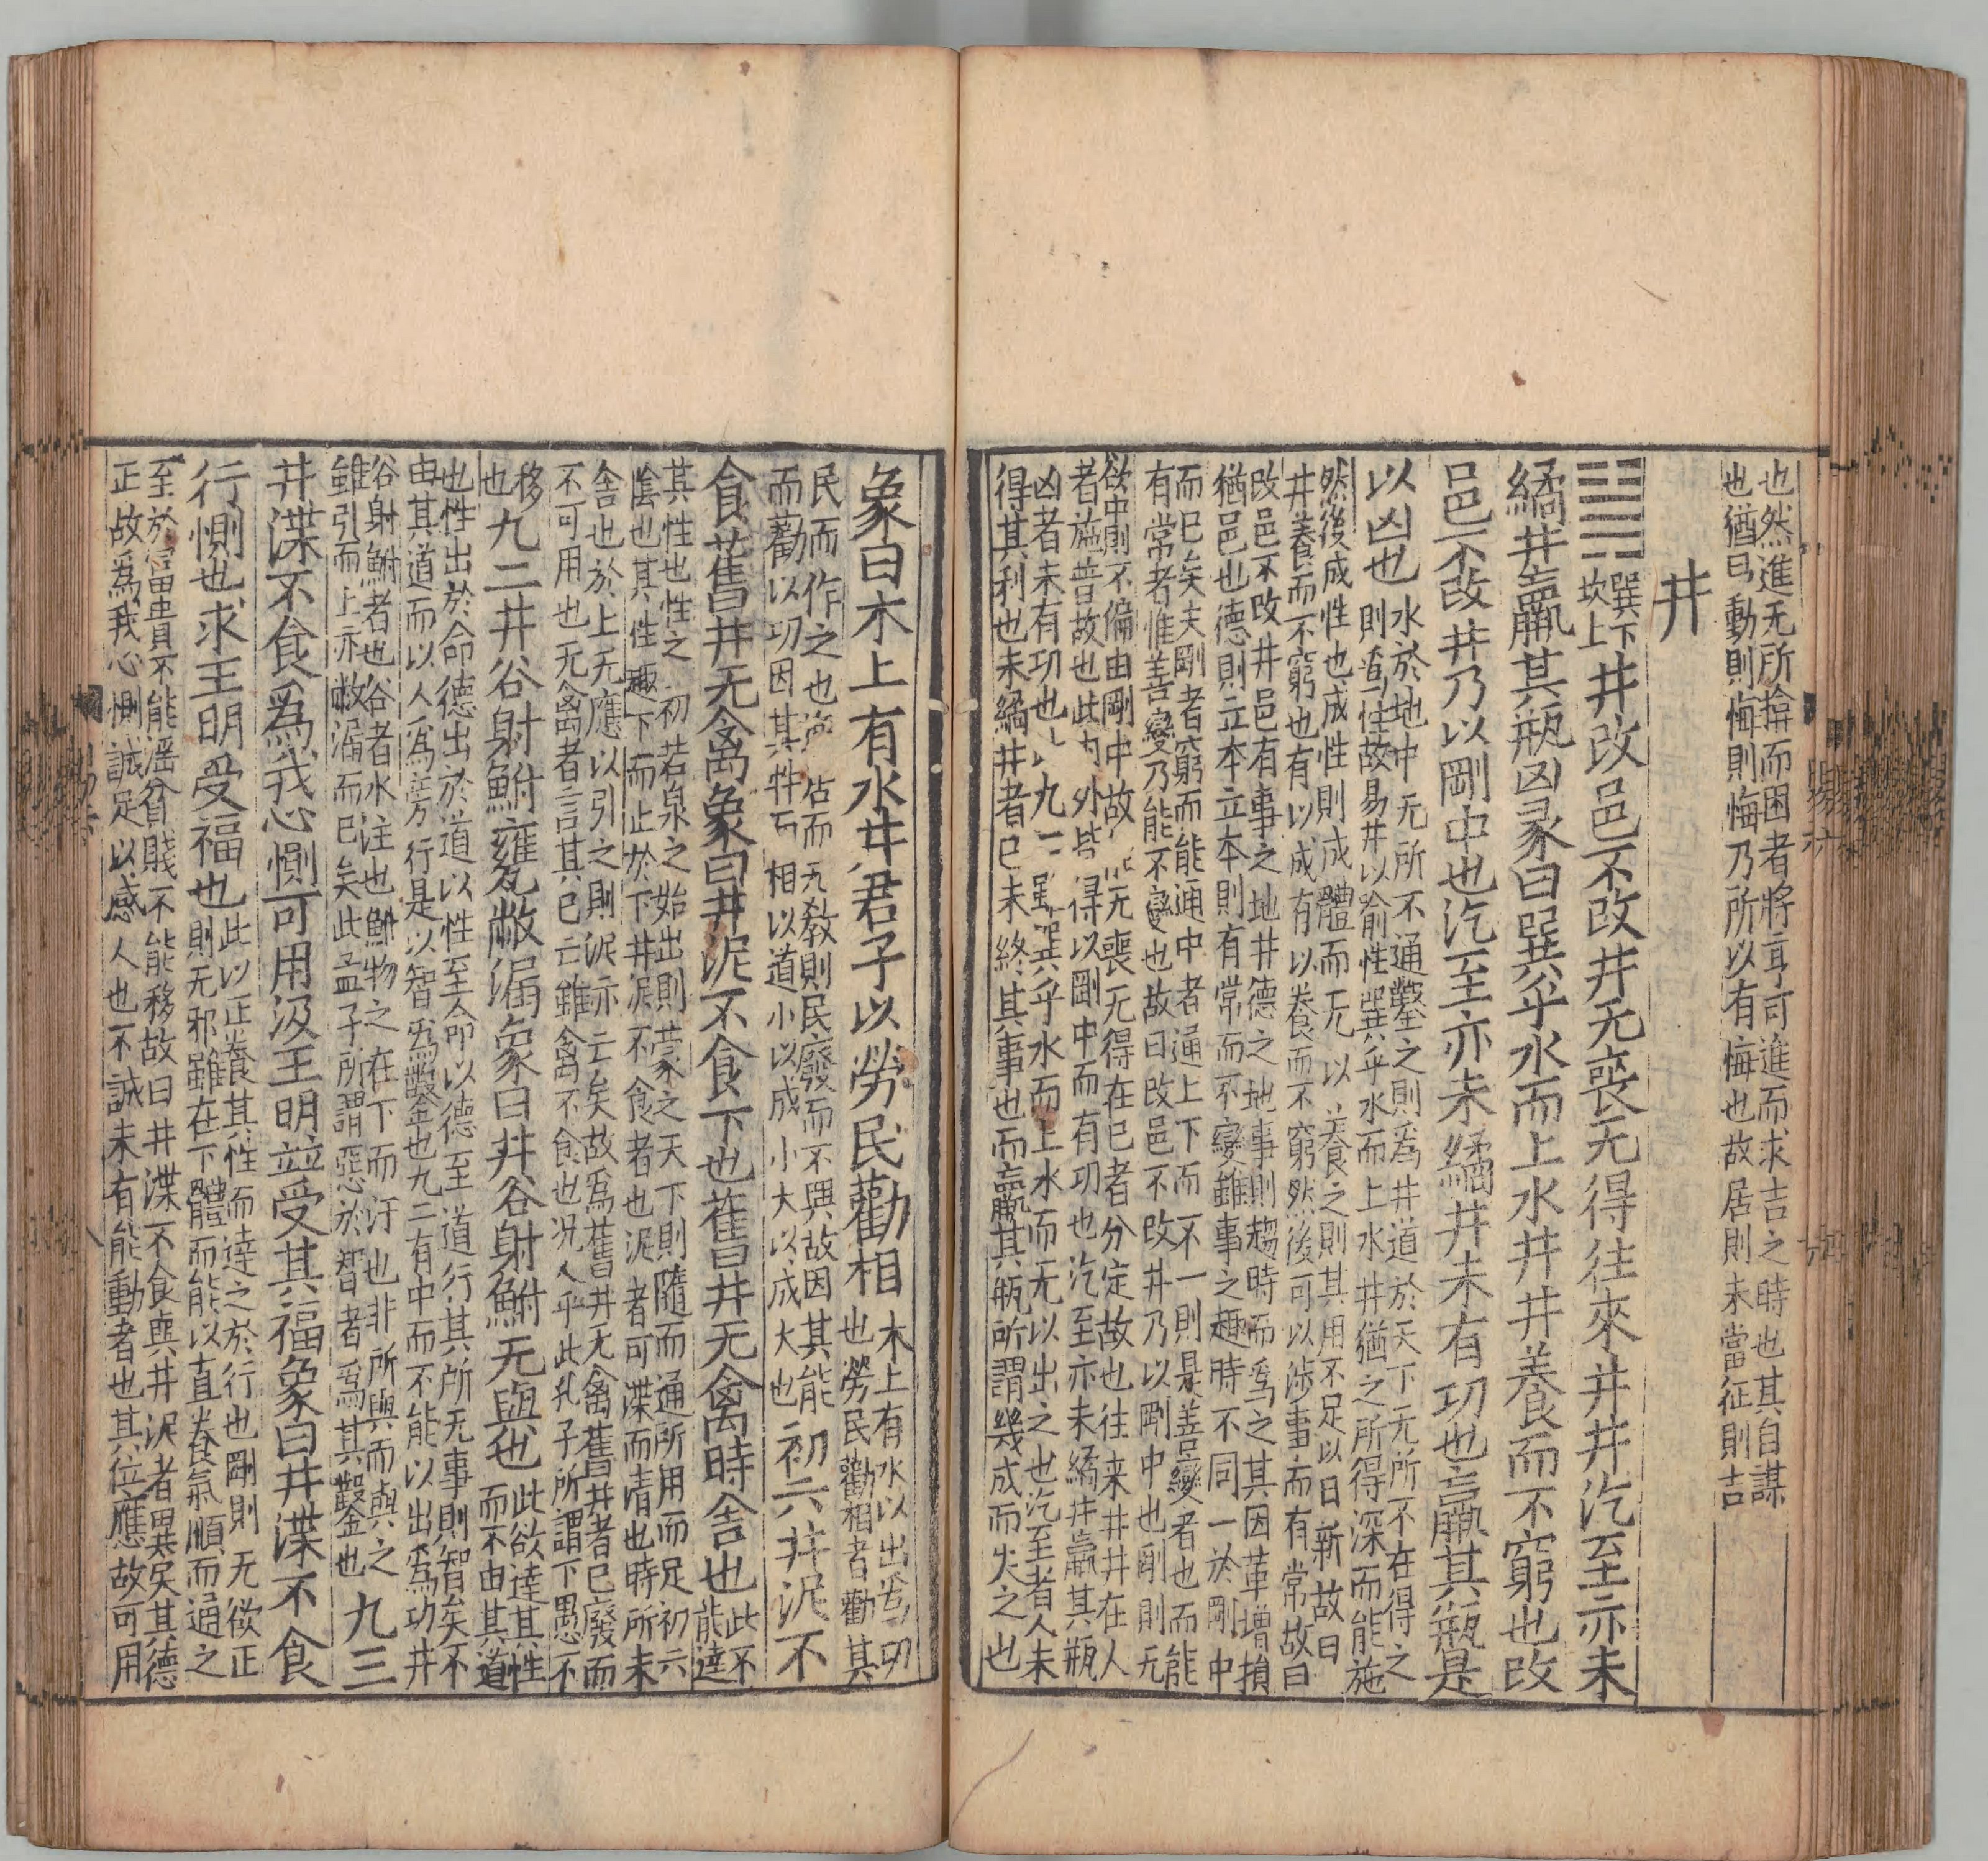 也然進无所揜而困者將亨可進而求吉之時也其自謀
也猶曰動則悔則悔乃所以有悔也故居則未當征則吉
井
巽下
坎上
井改邑不改井无喪无得往來井井汔至亦未
繘井羸其瓶凶彖曰巽乎水而上水井井養而不窮也改
邑不改井乃以剛中也汔至亦未繘井未有功也羸其瓶是
以凶也
水於地中无所不通鑿之則爲井道於天下无所不在得之
則爲性故易井以喻性巽乎水而上水井猶之所得深而能施
然後成性也成性則成體而无以養之則其用不足以日新故曰
井養而不窮也有以成有以養而不窮然後可以涉事而有常故曰
改邑不改井邑有事之地井德之地事則趨時而爲之其因革增損
猶邑也德則立本立本則有常而不變雖事之趣時不同一於剛中
而已矣夫剛者窮而能通中者通上下而不一則是善變者也而能
有常者惟善變乃能不變也故曰改邑不改井乃以剛中也剛則无
欲中則不偏由剛中故无喪无得在已者分定故也往来井井在人
者施普故也此外皆得以剛中而有功也汔至亦未繘井羸其瓶
凶者未有功也九巽乎水而上水而无以出之也汔至者人未
得其利也未繘井者已未終其事也而羸其瓶所謂幾成而失之也
象曰木上有水井君子以勞民勸相
木上有水以出爲功
也勞民勸相者勸其
民而作之也而无敎則民廢而不興故因其能
而勸以功因其相以道小以成小大以成大也
初六井泥不
食舊井无禽象曰井泥不食下也舊井无禽時舍也
此不
能達
其性也性之初若泉之始出則蒙之天下則隨而通所用而足初六
陰也其性趣下而止於下井泥不食者也泥者可渫而清也時所未
舍也於上无應以引之則泥亦云矣故爲舊井无禽舊井者已廢而
不可用也无禽者言其已云雖禽不食也况人乎此孔子所謂下愚不
移
也
九二井谷射鮒甕敝漏象曰井谷射鮒无與也
此欲達其性
而不由其道
也性出於命德出於道以性至命以德至道行其所无事則智矣不
由其道而以人爲旁行是以智爲鑿也九二有中而不能以出爲功井
谷射鮒者也谷者水注也鮒物之在下而汙也非所與而與之
雖引而上亦敝漏而已矣此孟子所謂惡於智者爲其鑿也
九三
井渫不食爲我心惻可用汲王明竝受其福象曰井渫不食
行惻也求王明受福也
此以正養其性而達之於行也剛則无欲正
則无邪雖在下體而能以直養氣順而通之
至於富貴不能滛貧賤不能移故曰井渫不食與井泥者異矣其德
正故爲我心惻誠足以感人也不誠未有能動者也其位應故可用